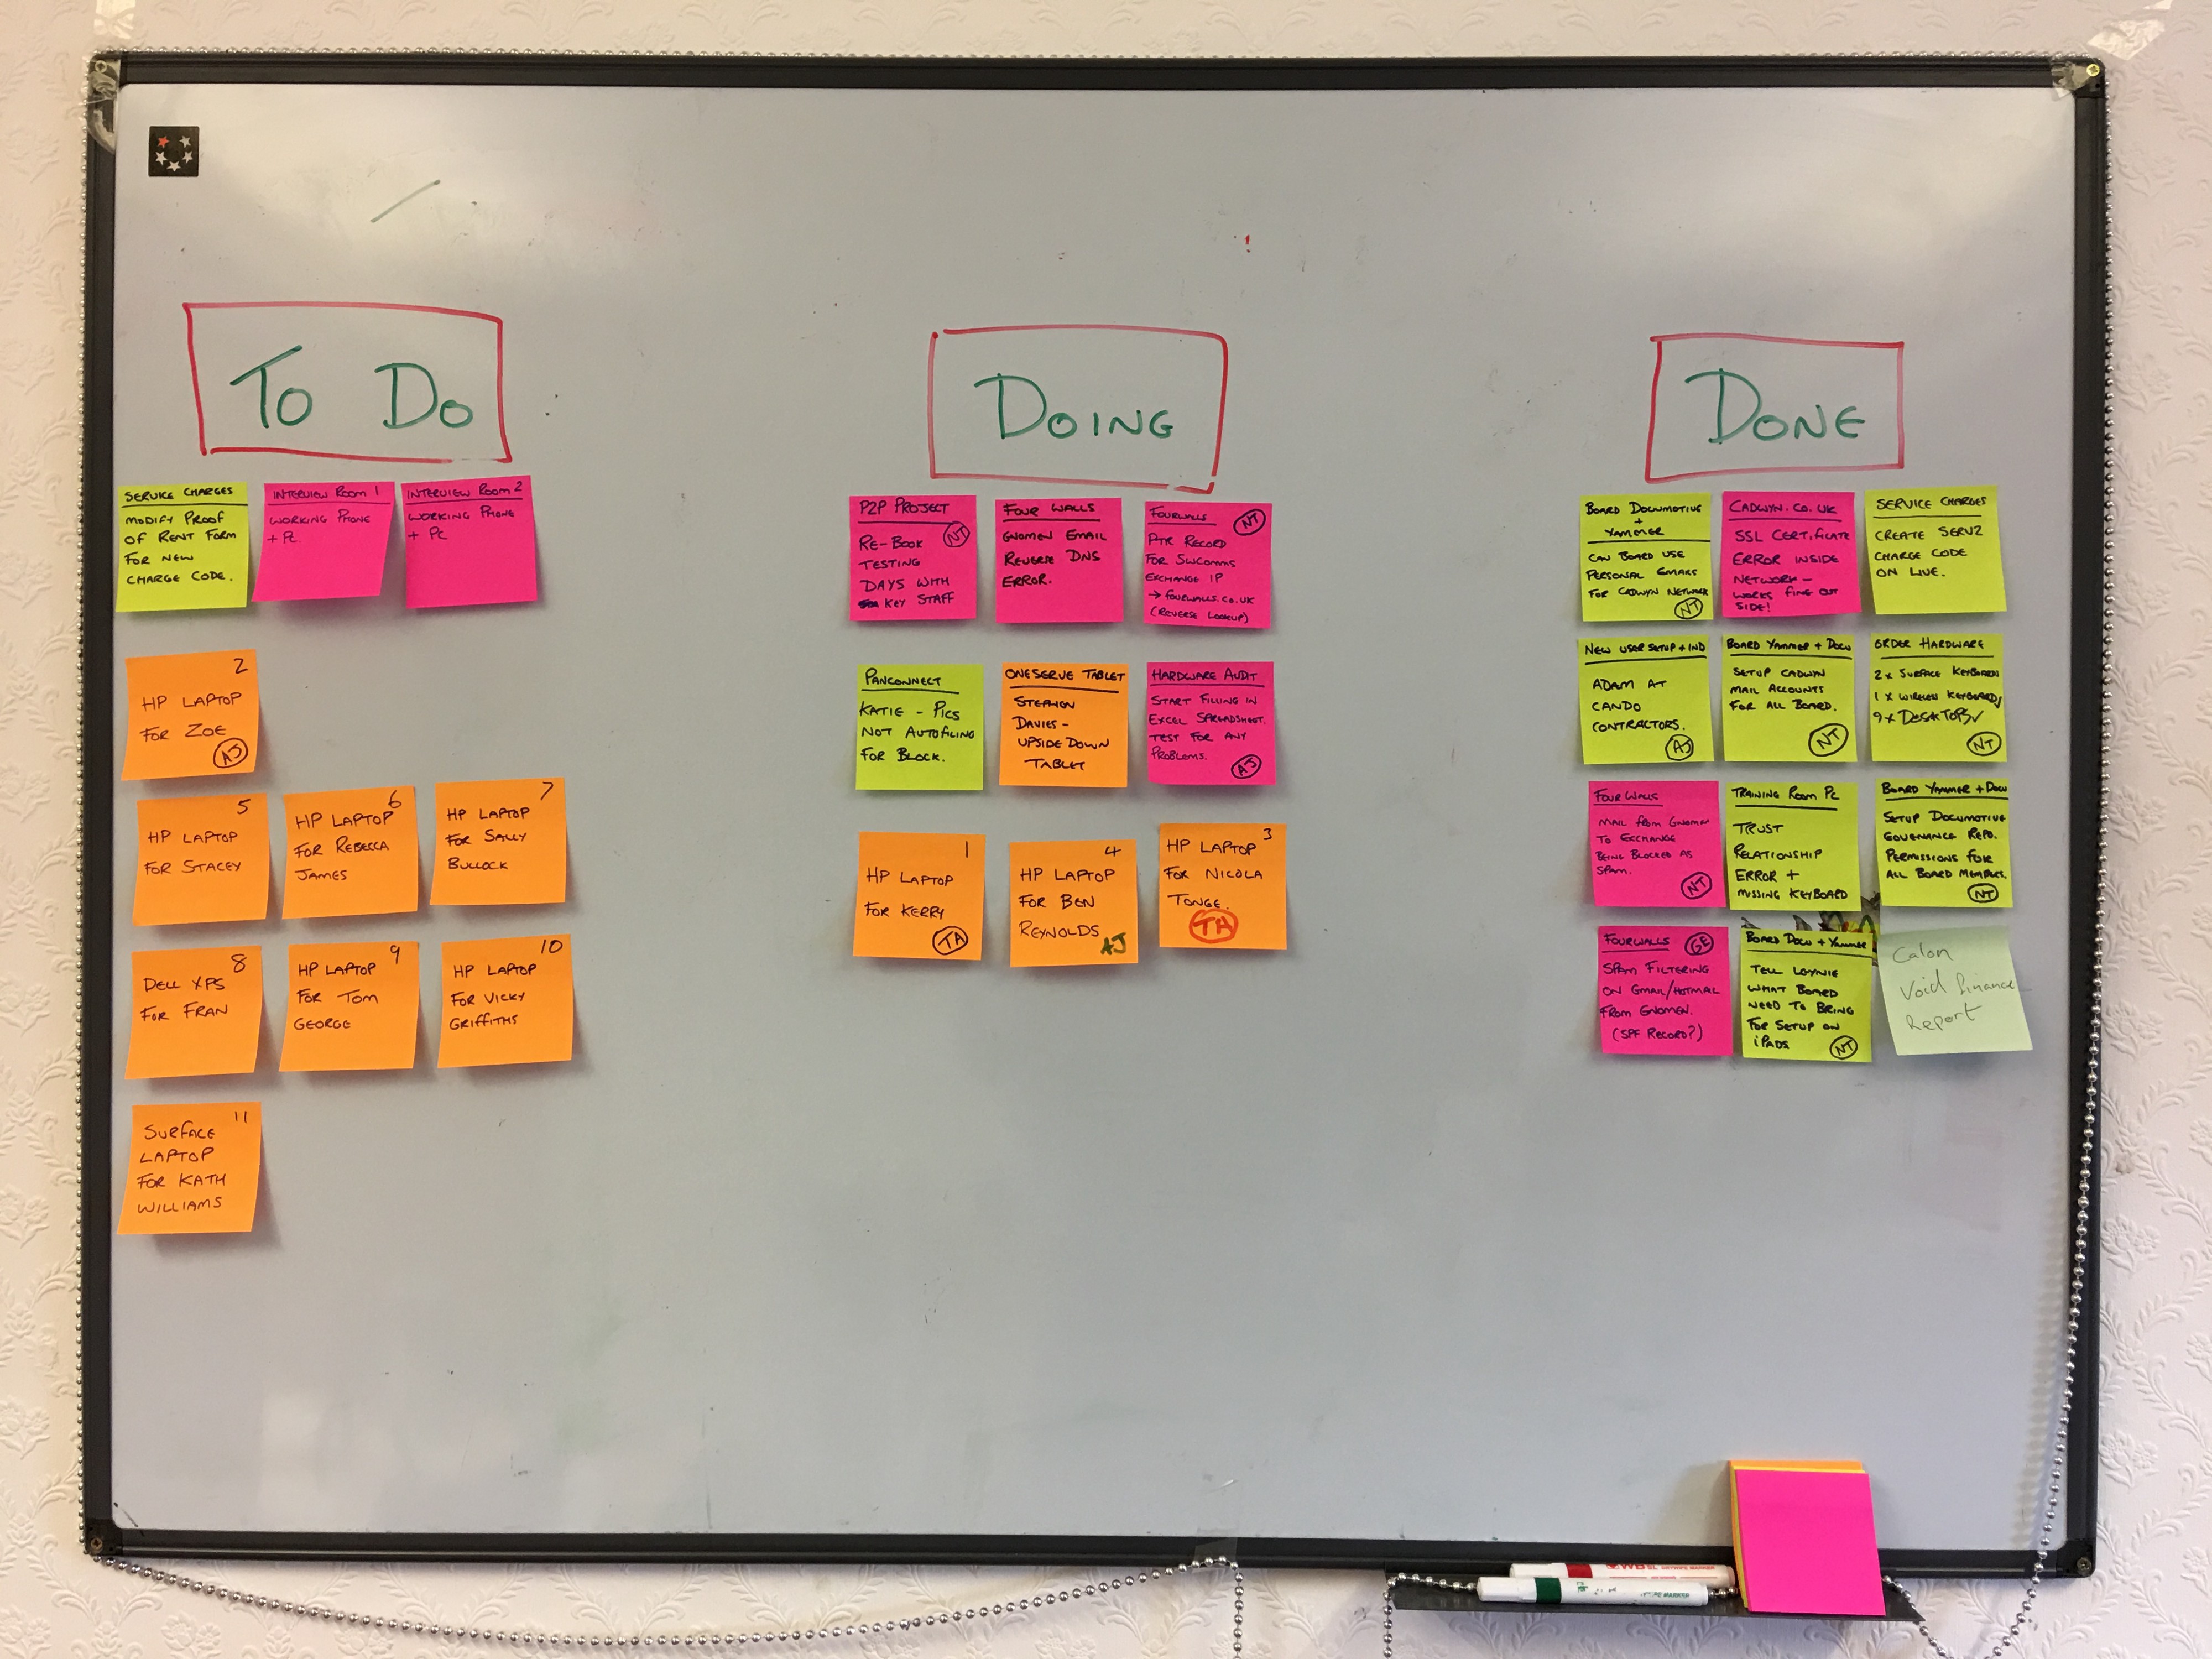 To Do
SERVICE CHARGES
MODIFY PROOF
OF RENT FORM
FOR NEW
CHARGE CODE.
INTERVIEW ROOM 1
WORKING PHONE
+ PC.
INTERVIEW ROOM 2
WORKING PHONE
+ PC
2
HP LAPTOP
FOR ZOE
AJ
5
HP LAPTOP
FOR STACEY
6
HP LAPTOP
FOR REBECCA
JAMES
7
HP LAPTOP
FOR SALLY
BULLOCK
8
DELL XPS
FOR FRAN
9
HP LAPTOP
FOR TOM
GEORGE
10
HP LAPTOP
FOR VICKY
GRIFFITHS
11
SURFACE
LAPTOP
FOR KATH
WILLIAMS
DOING
P2P PROJECT
NT
RE-BOOK
TESTING
DAYS WITH
KEY STAFF
FOUR WALLS
GNOMEN EMAIL
REVERSE DNS
ERROR.
FOURWALLS
NT
PTR RECORD
FOR SWCOMMS
EXCHANGE IP
→ FOURWALLS.CO.UK
(REVERSE LOOKUP)
PANCONNECT
KATIE - PICS
NOT AUTOFILING
FOR BLOCK.
ONESERVE TABLET
STEPHEN
DAVIES -
UPSIDE DOWN
TABLET
HARDWARE AUDIT
START FILLING IN
EXCEL SPREADSHEET.
TEST FOR ANY
PROBLEMS.
AJ
1
HP LAPTOP
FOR KERRY
TA
4
HP LAPTOP
FOR BEN
REYNOLDS
AJ
3
HP LAPTOP
FOR NICOLA
TONGE.
TA
DONE
BOARD DOCUMOTIVE
+
YAMMER
CAN BOARD USE
PERSONAL EMAILS
FOR CADWYN NETWORK
NT
CADWYN.CO.UK
SSL CERTIFICATE
ERROR INSIDE
NETWORK -
WORKS FINE OUT
SIDE!
SERVICE CHARGES
CREATE SERV2
CHARGE CODE
ON LIVE.
NEW USER SETUP + IND
ADAM AT
CANDO
CONTRACTORS.
AJ
BOARD YAMMER + DOCU
SETUP CADWYN
MAIL ACCOUNTS
FOR ALL BOARD.
NT
ORDER HARDWARE
2 x SURFACE KEYBOARDS
1 x WIRELESS KEYBOARD
9 x DESKTOPS
NT
FOUR WALLS
MAIL FROM GNOMEN
TO EXCHANGE
BEING BLOCKED AS
SPAM.
NT
TRAINING ROOM PC
TRUST
RELATIONSHIP
ERROR +
MISSING KEYBOARD
BOARD YAMMER + DOCU
SETUP DOCUMOTIVE
GOVENANCE REPO.
PERMISSIONS FOR
ALL BOARD MEMBERS.
NT
FOURWALLS
GE
SPAM FILTERING
ON GMAIL/HOTMAIL
FROM GNOMEN.
(SPF RECORD?)
BOARD DOCU + YAMMER
TELL
WHAT BOARD
NEED TO BRING
FOR SETUP ON
iPADS
NT
Calon
Void finance
Report